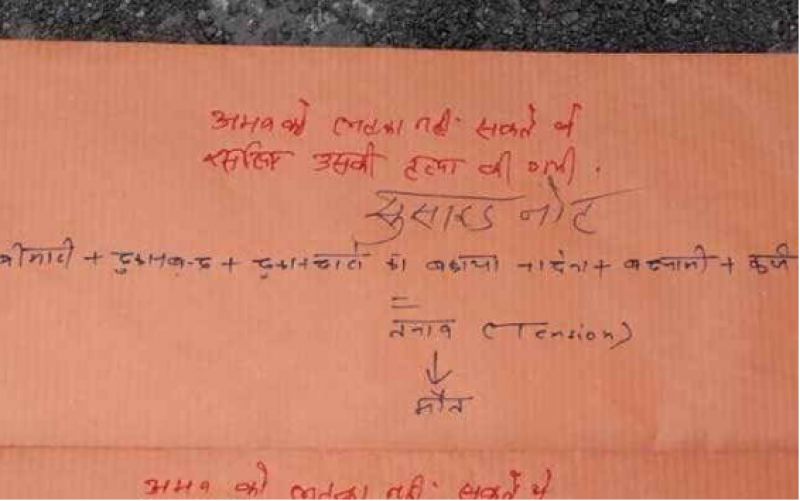 अमन को लटका नहीं सकते थे
इसलिए उसकी हत्या की गयी.
सुसाइड नोट
बीमारी + दुकान बन्द + दुकानदारो का बकाया ना देना + बदनामी + कर्ज
=
तनाव (Tension)
↓
मौत
अमन को लटका नहीं सकते थे